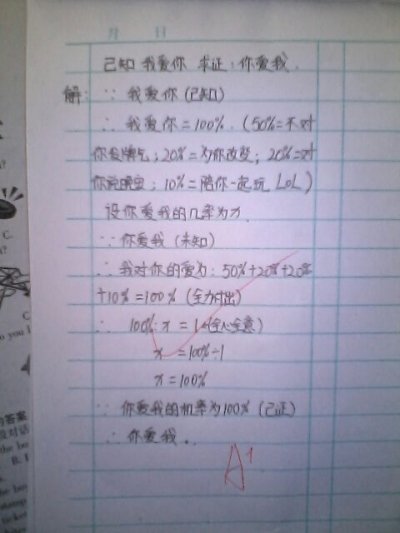 月 日
已知 我爱你 求证:你爱我.
解: ∵ 我爱你 (已知)
∴ 我爱你=100%.(50%=不对
你发脾气;20%=为你改变;20%=对
你说晚安;10%=陪你一起玩 LOL)
设你爱我的几率为x.
∵ 你爱我 (未知)
∴ 我对你的爱为:50%+20%+20%
+10%=100% (全力付出)
∴ 100%:x = 1 (全心全意)
x =100%÷1
x =100%
∵ 你爱我的机率为100% (已证)
∴ 你爱我..
A+